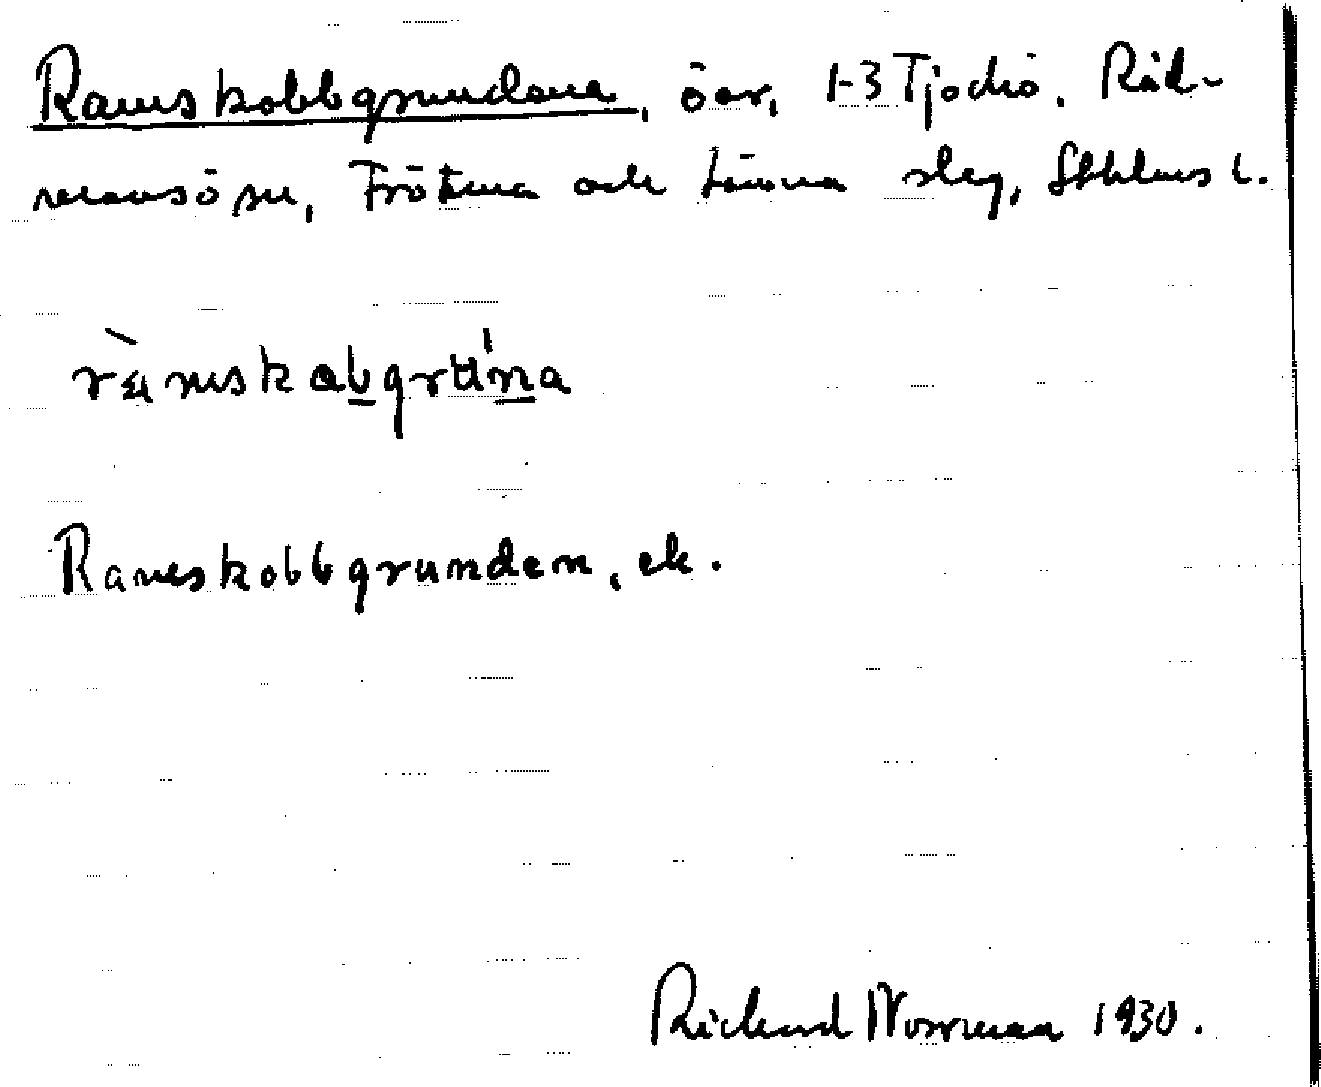 Ramskobbgrundana, öar, 1-3 Tjockö. Råd-
mansön, Frötuna och Länna slg, Sthlms l.
ràmskabgrúna
Ramskobbgrunden, ek.
Rickard Norrman 1930.